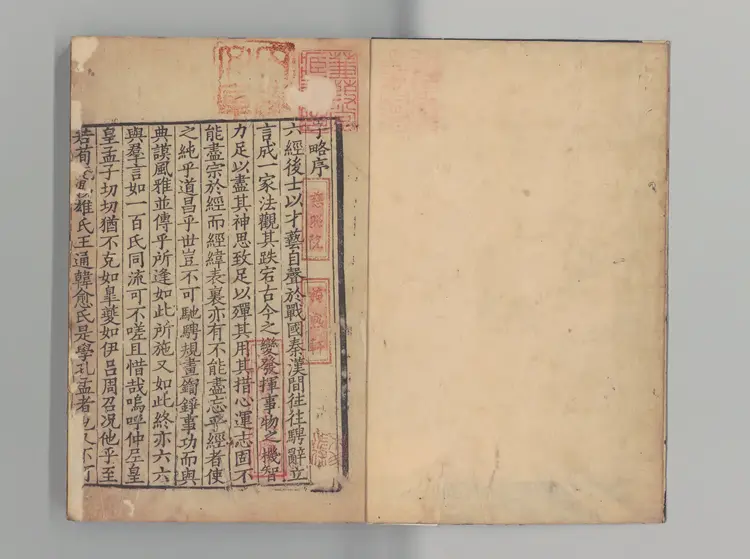 子略序
六經後士以才藝自聲於戰國秦漢間往往騁辭立
言成一家法觀其跌宕古今之變發揮事物之機智
力足以盡其神思致足以殫其用其措心運志固不
能盡宗於經而經緯表裏亦有不能盡忘乎經者使
之純乎道昌乎世豈不可馳騁規畫錚事功而與
典謨風雅並傳乎所逢如此所施又如此終亦六六
與羣言如一百氏同流可不嗟且惜哉嗚呼仲尼皇
皇孟子切切猶不克如皐夔如伊呂周召况他乎至
若荀雄氏王通韓愈氏是學孔孟者也又不可
慈照院